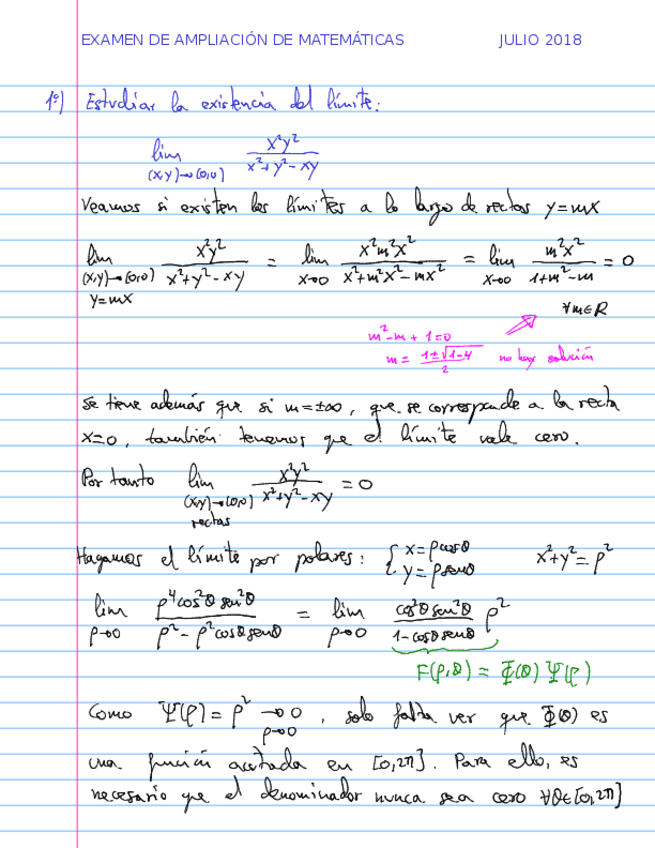 EXAMEN DE AMPLIACIÓN DE MATEMÁTICAS JULIO 2018
1º) Estudiar la existencia del límite:
lim (x,y)→(0,0) x²y² / (x²+y²-xy)
Veamos si existen los límites a lo largo de rectas y=mx
lim (x,y)→(0,0) y=mx x²y² / (x²+y²-xy) = lim x→0 x²m²x² / (x²+m²x²-mx²) = lim x→0 m²x² / (1+m²-m) = 0
∀m∈R
m²-m+1=0
m = (1±√(1-4)) / 2 no hay solución
Se tiene además que si m=±∞, que se corresponde a la recta
x=0, también tenemos que el límite vale cero.
Por tanto lim (x,y)→(0,0) rectas x²y² / (x²+y²-xy) = 0
Hagamos el límite por polares: { x=ρcosθ y=ρsenθ x²+y²=ρ²
lim ρ→0 ρ⁴cos²θ sen²θ / (ρ²-ρ²cosθsenθ) = lim ρ→0 cos²θ sen²θ / (1-cosθsenθ) ρ²
F(ρ,θ) = Φ(θ) Ψ(ρ)
Como Ψ(ρ) = ρ² →0 ρ→0, solo falta ver que Φ(θ) es
una función acotada en [0,2π]. Para ello, es
necesario que el denominador nunca sea cero ∀θ∈[0,2π]